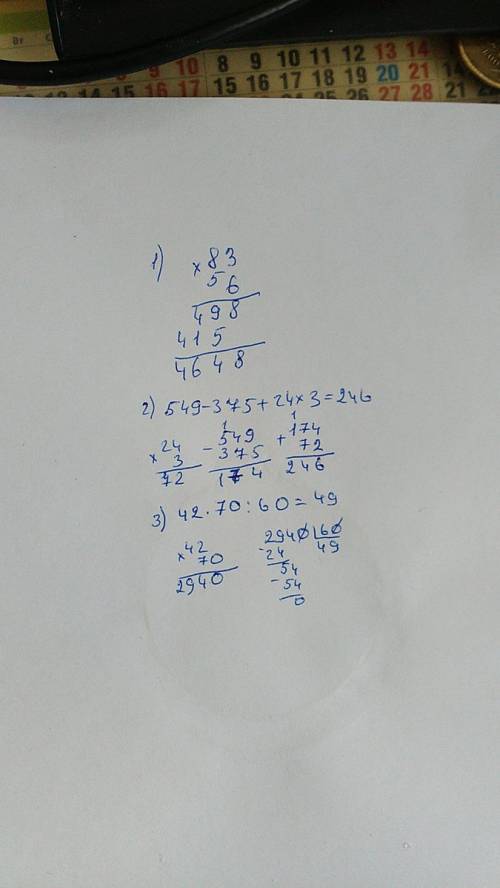 8 9 10 11 12 13 14
9 10 15 16 17 18 19 20 21 14
13 14 15 16 17 22 23 24 25 26 27 28 21
1) ×83
56
498
415
4648
2) 549-375+24×3=246
×24 -549 +174
3 375 72
72 174 246
3) 42·70:60=49
×42 2940 60
70 -24 49
2940 54
-54
0